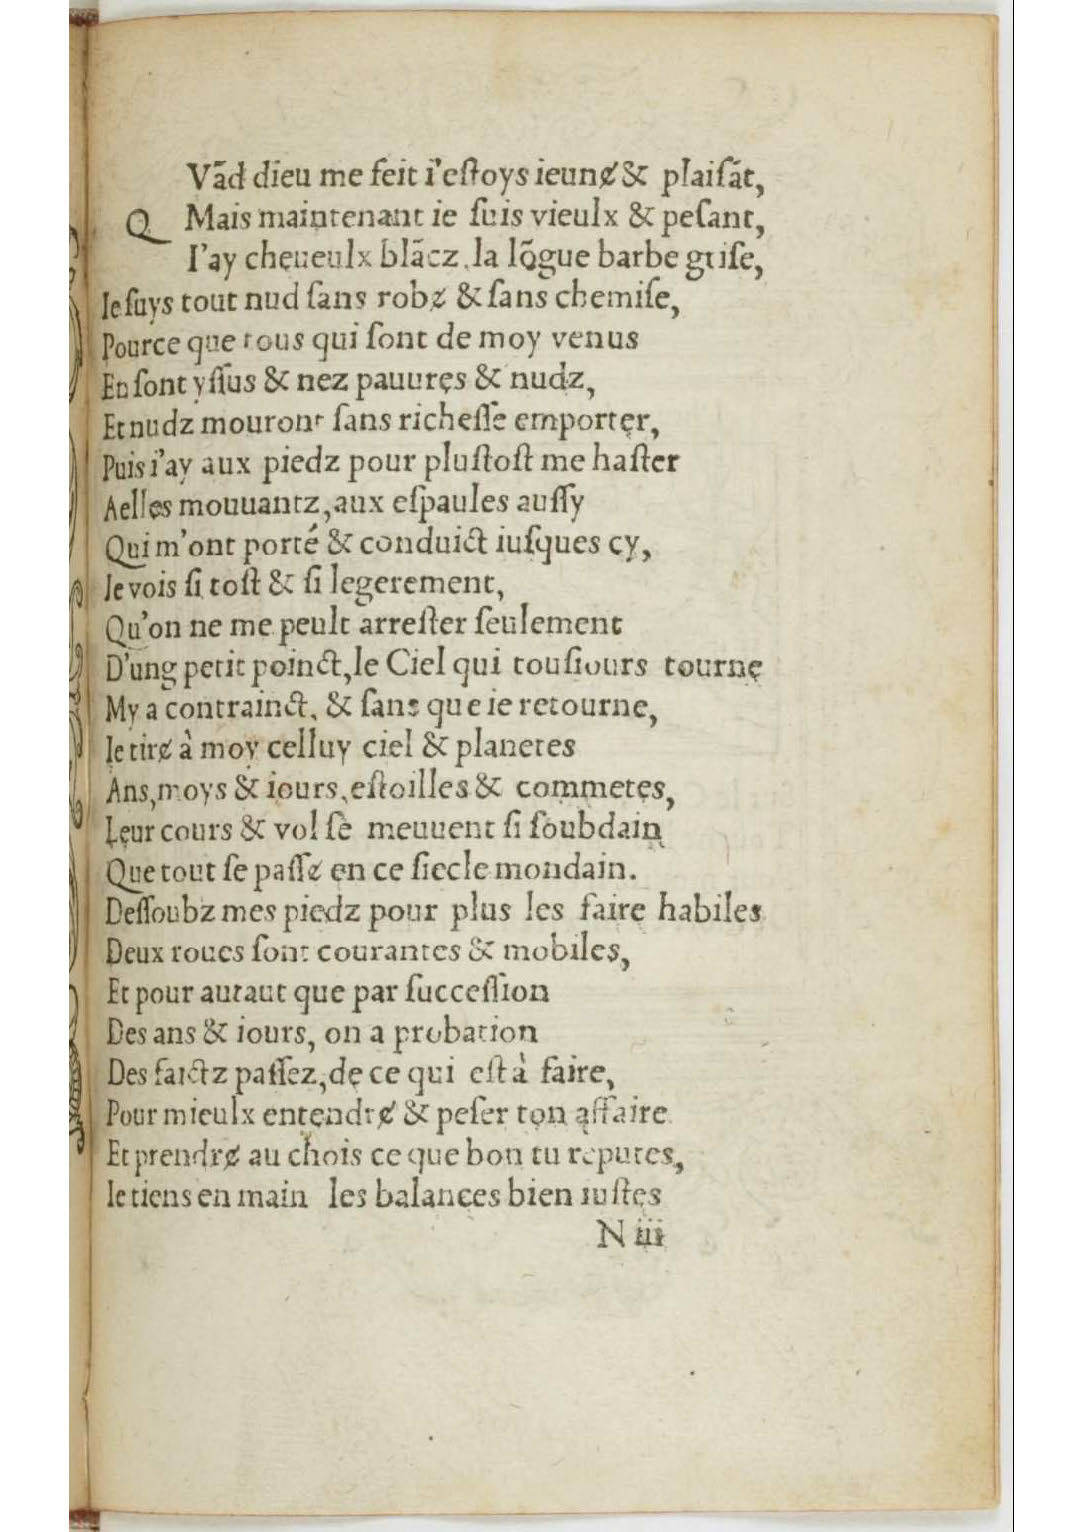 QVãd dieu me feit i'eſtoys ieunɇ & plaiſãt,
Mais maintenant ie ſuis vieulx & peſant,
I'ay cheueulx blãcz, la lõgue barbe griſe,
Ie ſuys tout nud ſans robɇ & ſans chemiſe,
Pource que tous qui ſont de moy venus
En ſont yſſus & nez pauures & nudz,
Et nudz mouront ſans richeſſe emporter,
Puis i'ay aux piedz pour pluſtoſt me haſter
Aelles mouuantz, aux eſpaules auſſy
Qui m'ont porté & conduict iuſques cy,
Ie vois ſi toſt & ſi legerement,
Qu'on ne me peult arreſter ſeulement
D'ung petit poinct, le Ciel qui touſiours tourne
My a contrainct, & ſans que ie retourne,
Ie tirɇ à moy celluy ciel & planetes
Ans, moys & iours, eſtoilles & commetes,
Leur cours & vol ſe meuuent ſi ſoubdain
Que tout ſe paſſɇ en ce ſiecle mondain.
Deſſoubz mes piedz pour plus les faire habiles
Deux roues ſont courantes & mobiles,
Et pour autaut que par ſucceſſion
Des ans & iours, on a probation
Des faictz paſſez, de ce qui eſt à faire,
Pour mieulx entendrɇ & peſer ton affaire
Et prendrɇ au chois ce que bon tu reputes,
Ie tiens en main les balances bien iuſtes
N iii